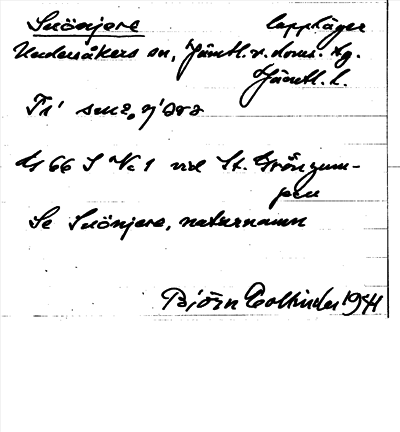 Snönjere lappläger
Undersåkers sn, Jämtl. v. doms. tg.
Jämtl. l.
Ti'
Gs 66 S V. 1 vid St. Gröngum-
pen
Se Snönjere, naturnamn
Björn Collinder 1941